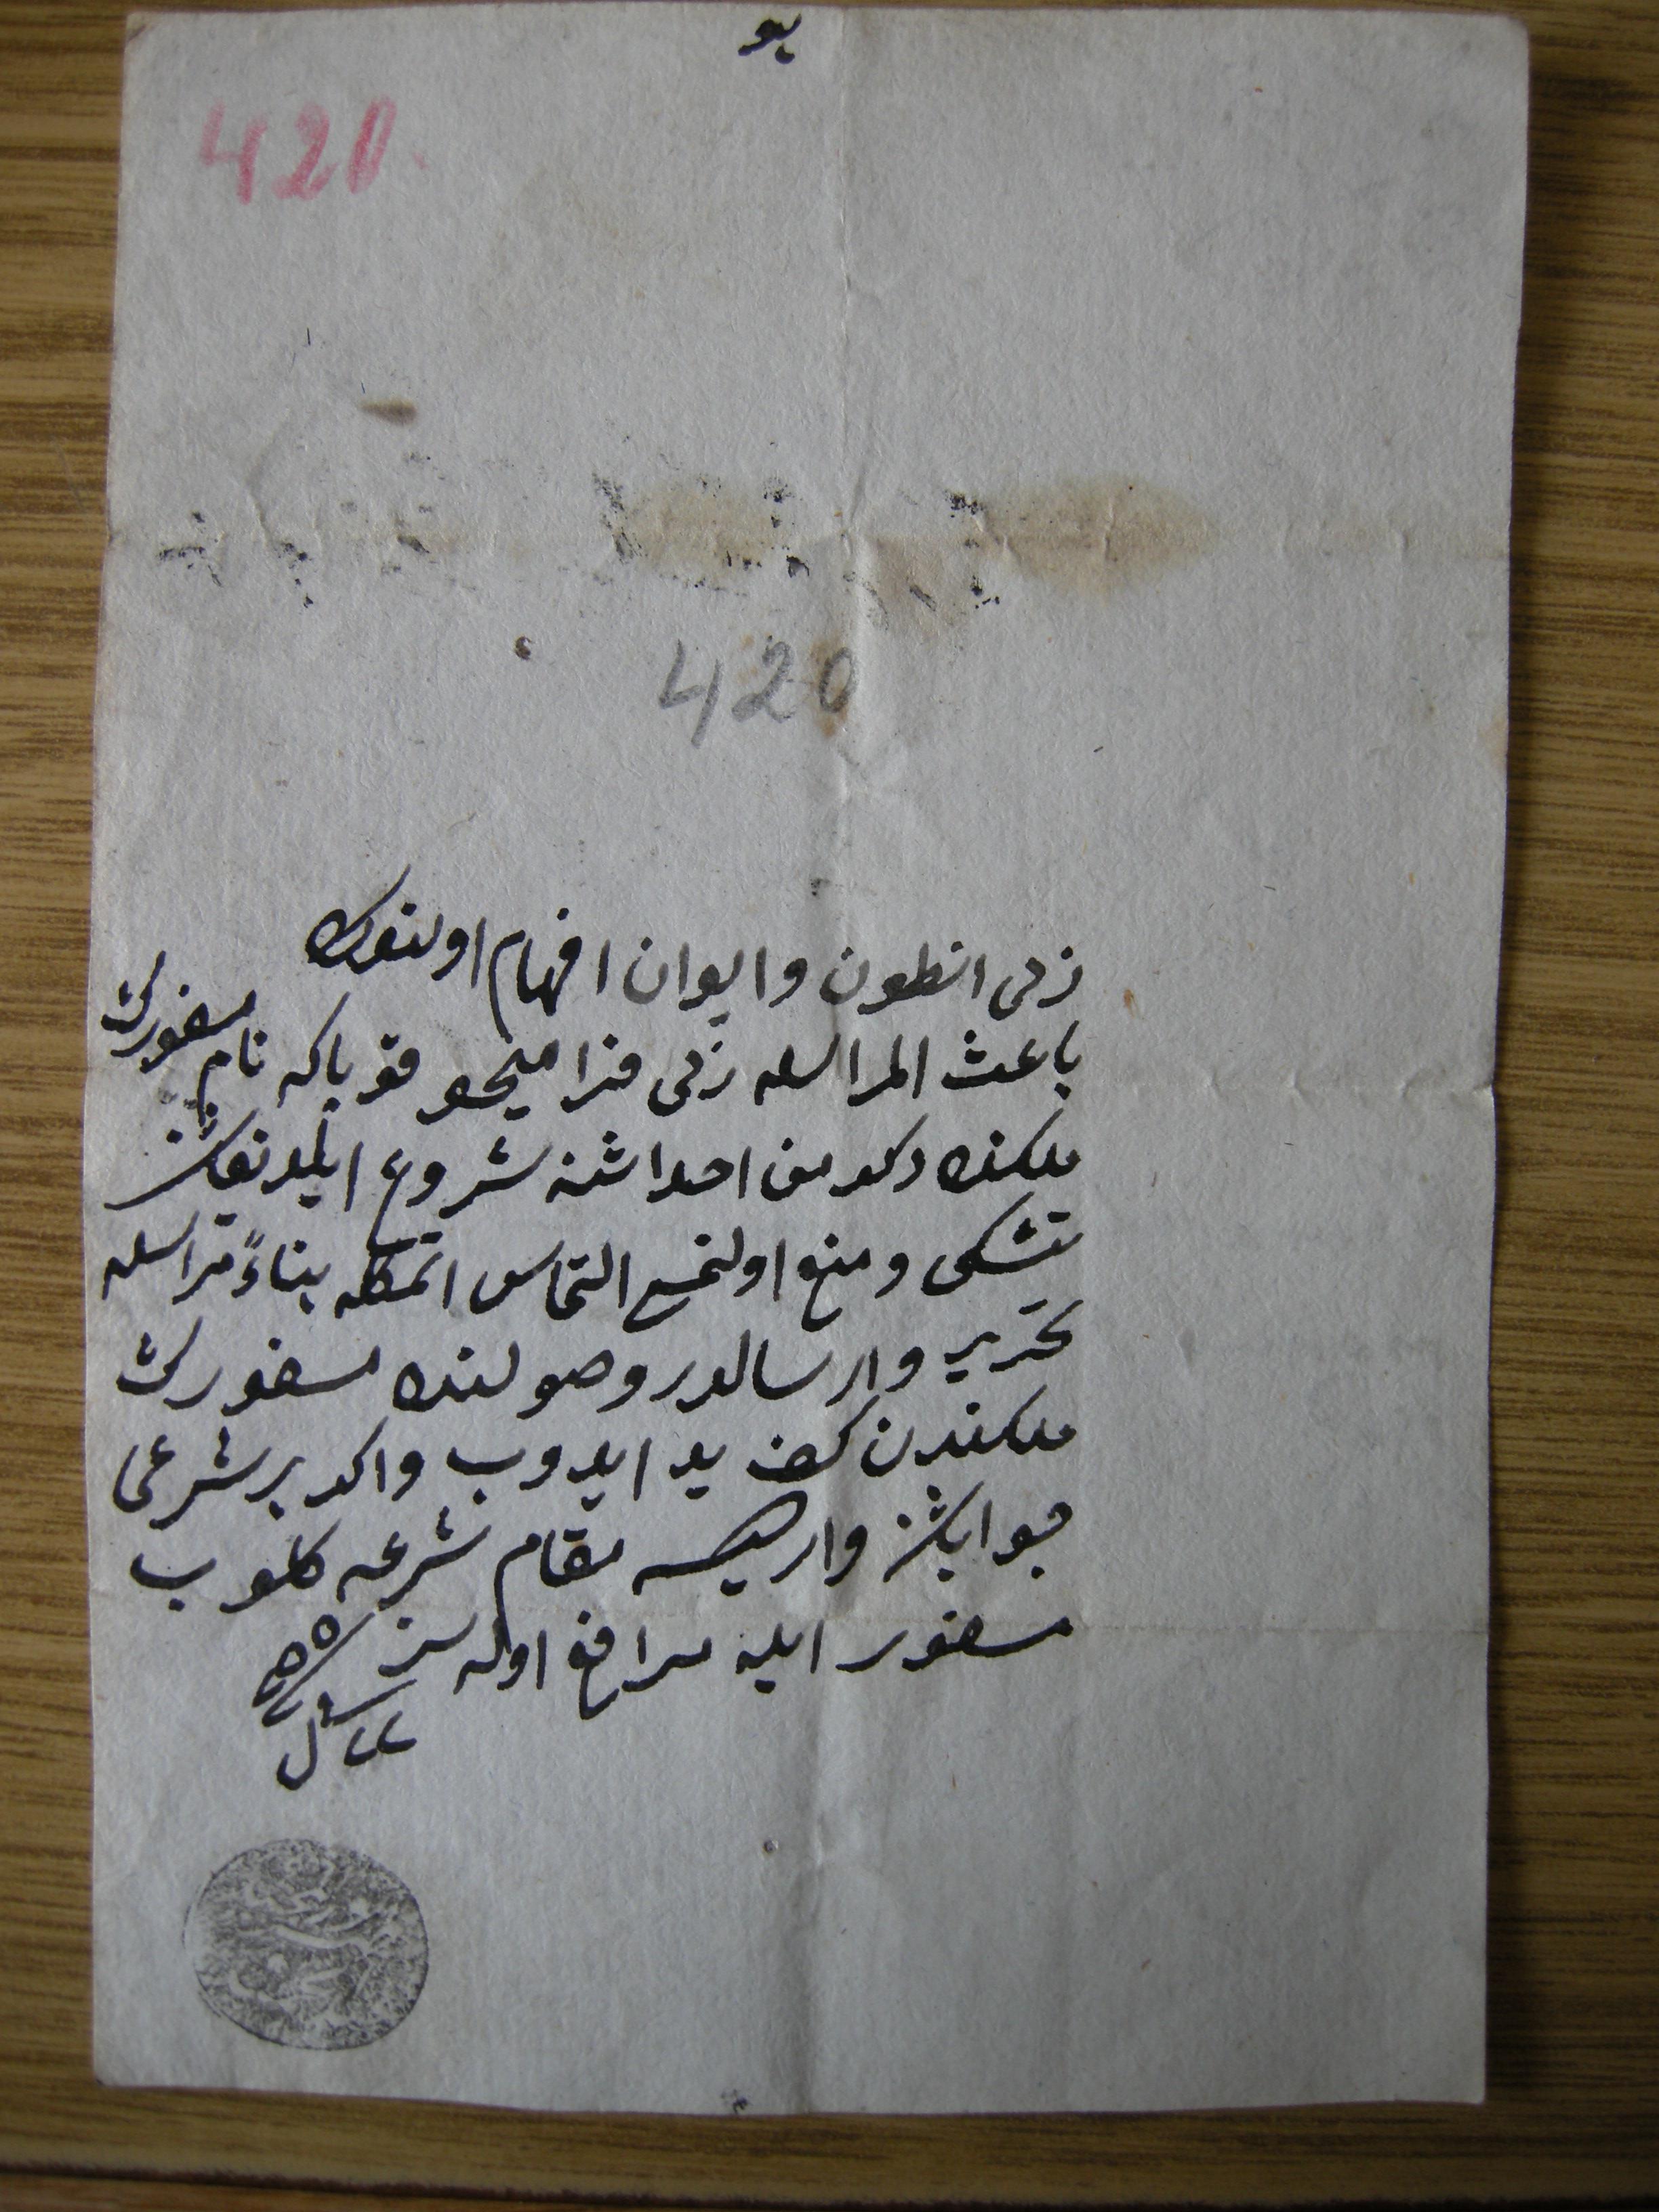 هو
420.
420
زمی انطون و ایوان افهام اولنورکه
باعث المراسله زمی فرا میحو قوباکه نام مسفورک
ملکنده دکرمن احداثنه شروع ایلدیکندن
تشکی و منع اولنمسی التماس اتمکله بناءً مراسله
تحریر و ارسالدر وصولنده مسفورک
ملکندن کف ید ایدوب و اکر بر شرعی
جوابکز وار ایسه مقام شرعه کلوب
مسفور ایله مرافع اوله سز